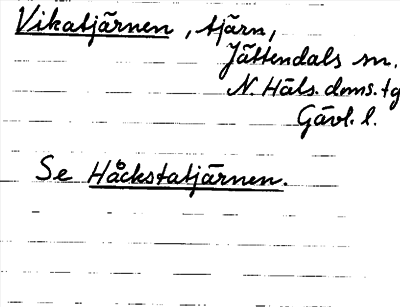 Vikatjärnen, tjärn,
Jättendals sn.
N. Häls. doms. tg
Gävl. l.
Se Håckstatjärnen.